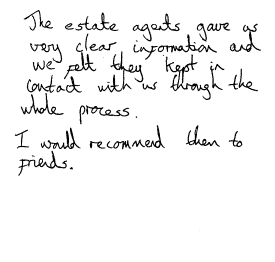 The estate agents gave us
very clear information and
we felt they kept in
contact with us through the
whole process.
I would recommend them to
friends.